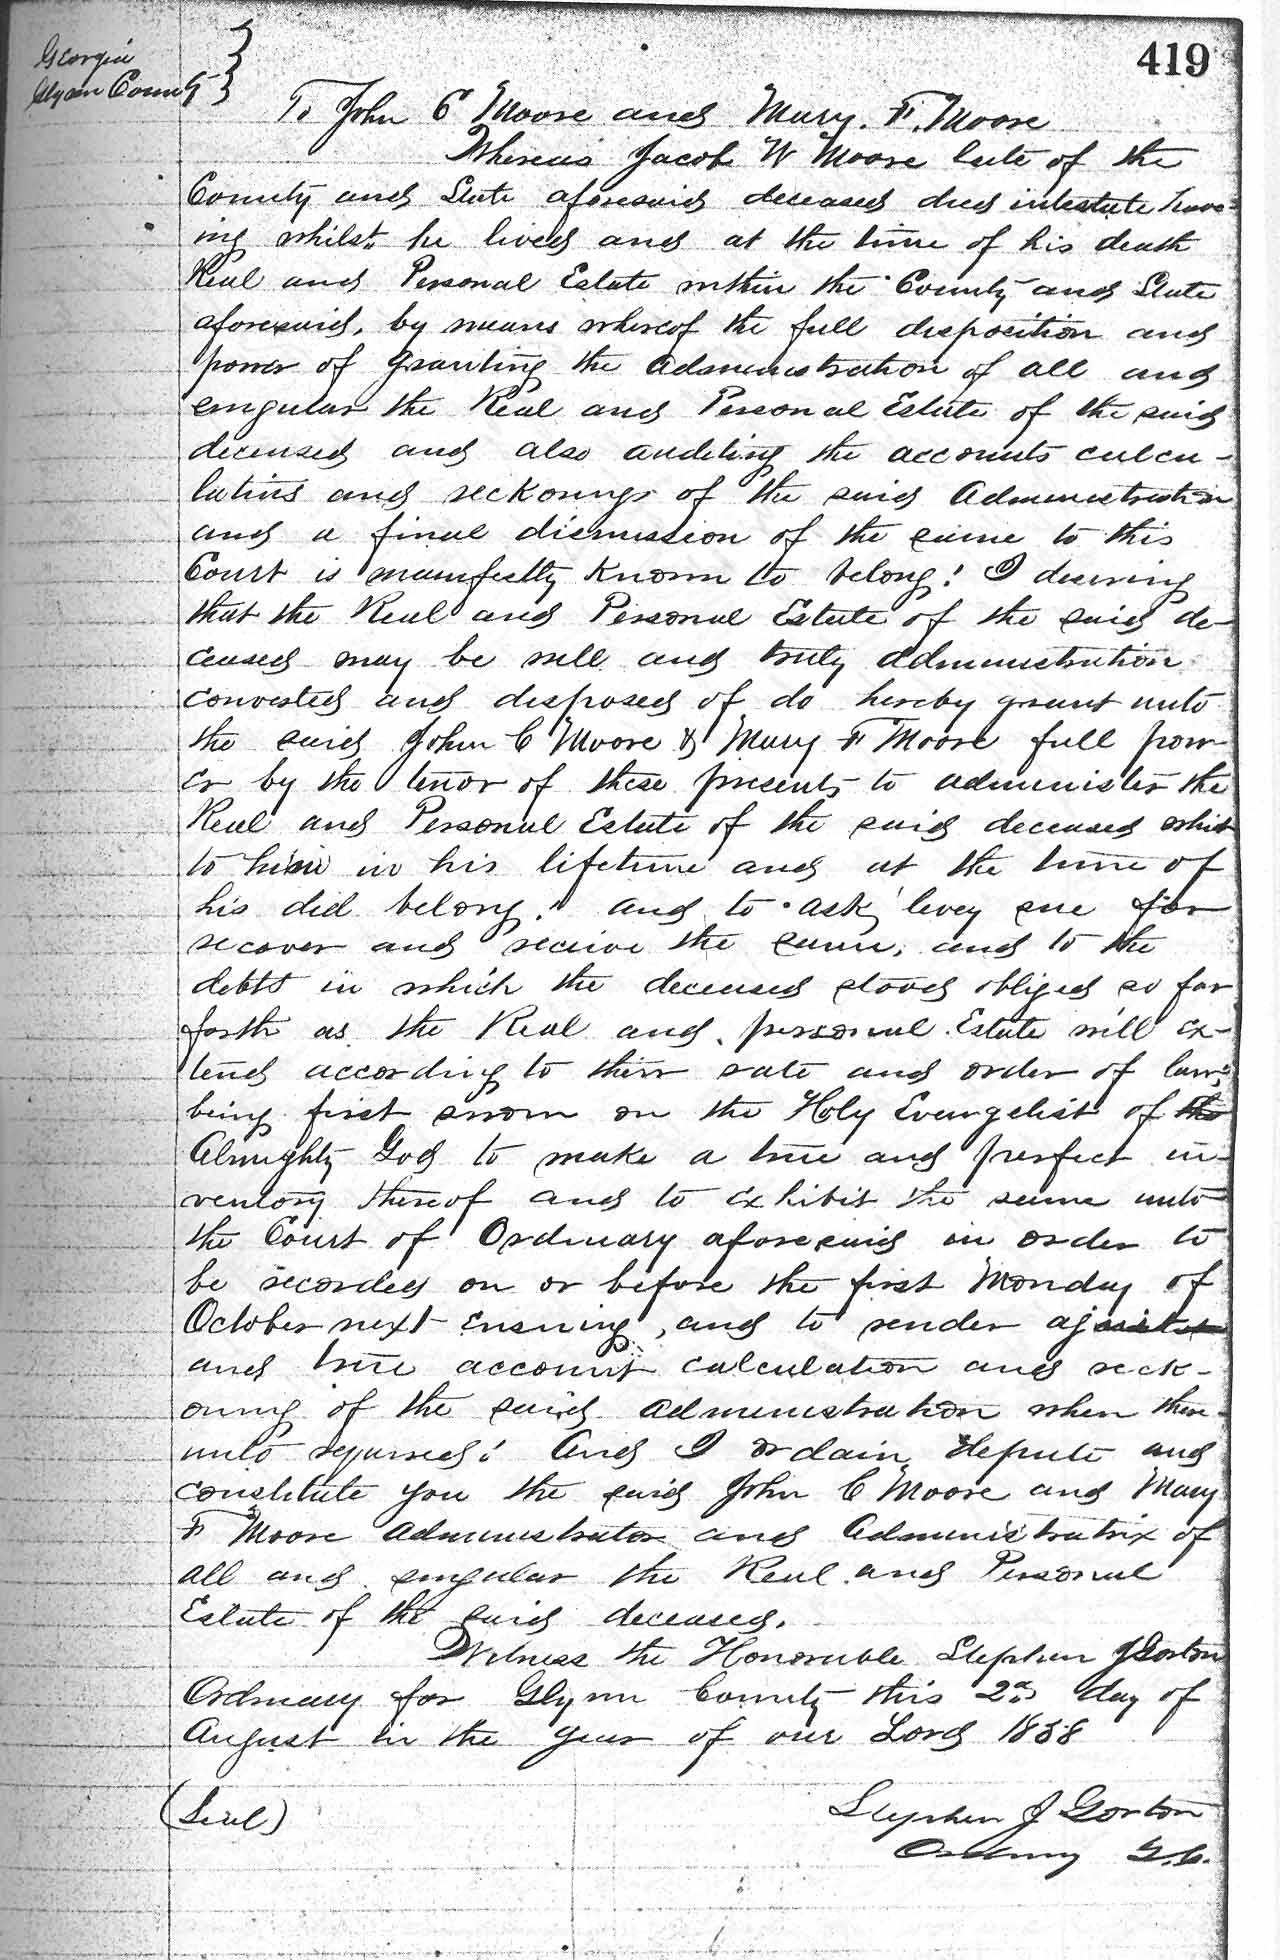 419
Georgia
Glynn County
To John C Moore and Mary. F. Moore
Whereas Jacob W Moore late of the
County and State aforesaid deceased died intestate hav-
ing whilst he lived and at the time of his death
Real and Personal Estate within the County and State
aforesaid, by means whereof the full disposition and
power of granting the administration of all and
singular the Real and Personal Estate of the said
deceased and also auditing the accounts calcu-
lations and reckonings of the said Administration
and a final dismission of the same to this
Court is manifestly known to belong! I desiring
that the Real and Personal Estate of the said de-
ceased may be well and truly administration
converted and disposed of do hereby grant unto
the said John C Moore & Mary F Moore full pow-
er by the tenor of these presents to administer the
Real and Personal Estate of the said deceased which
to him in his lifetime and at the time of
his did belong. and to ask levey sue for
recover and receive the same, and to the
debts in which the deceased stood obliged so far
forth as the Real and personal Estate will ex-
tend according to their rate and order of law,
being first sworn on the Holy Evangelist of the
Almighty God to make a true and perfect in-
ventory thereof and to exhibit the same unto
the Court of Ordinary aforesaid in order to
be recorded on or before the first Monday of
October next ensuing, and to render a
and true account calculation and reck-
oning of the said administration when there-
unto required! And I ordain depute and
constitute you the said John C Moore and Mary
F Moore Administrator and Administratrix of
all and singular the Real and Personal
Estate of the said deceased.
Witness the Honorable Stephen J Gorton
Ordinary for Glynn County this 2nd day of
August in the year of our Lord 1858
(Seal)
Stephen J Gorton
Ordinary G.C.